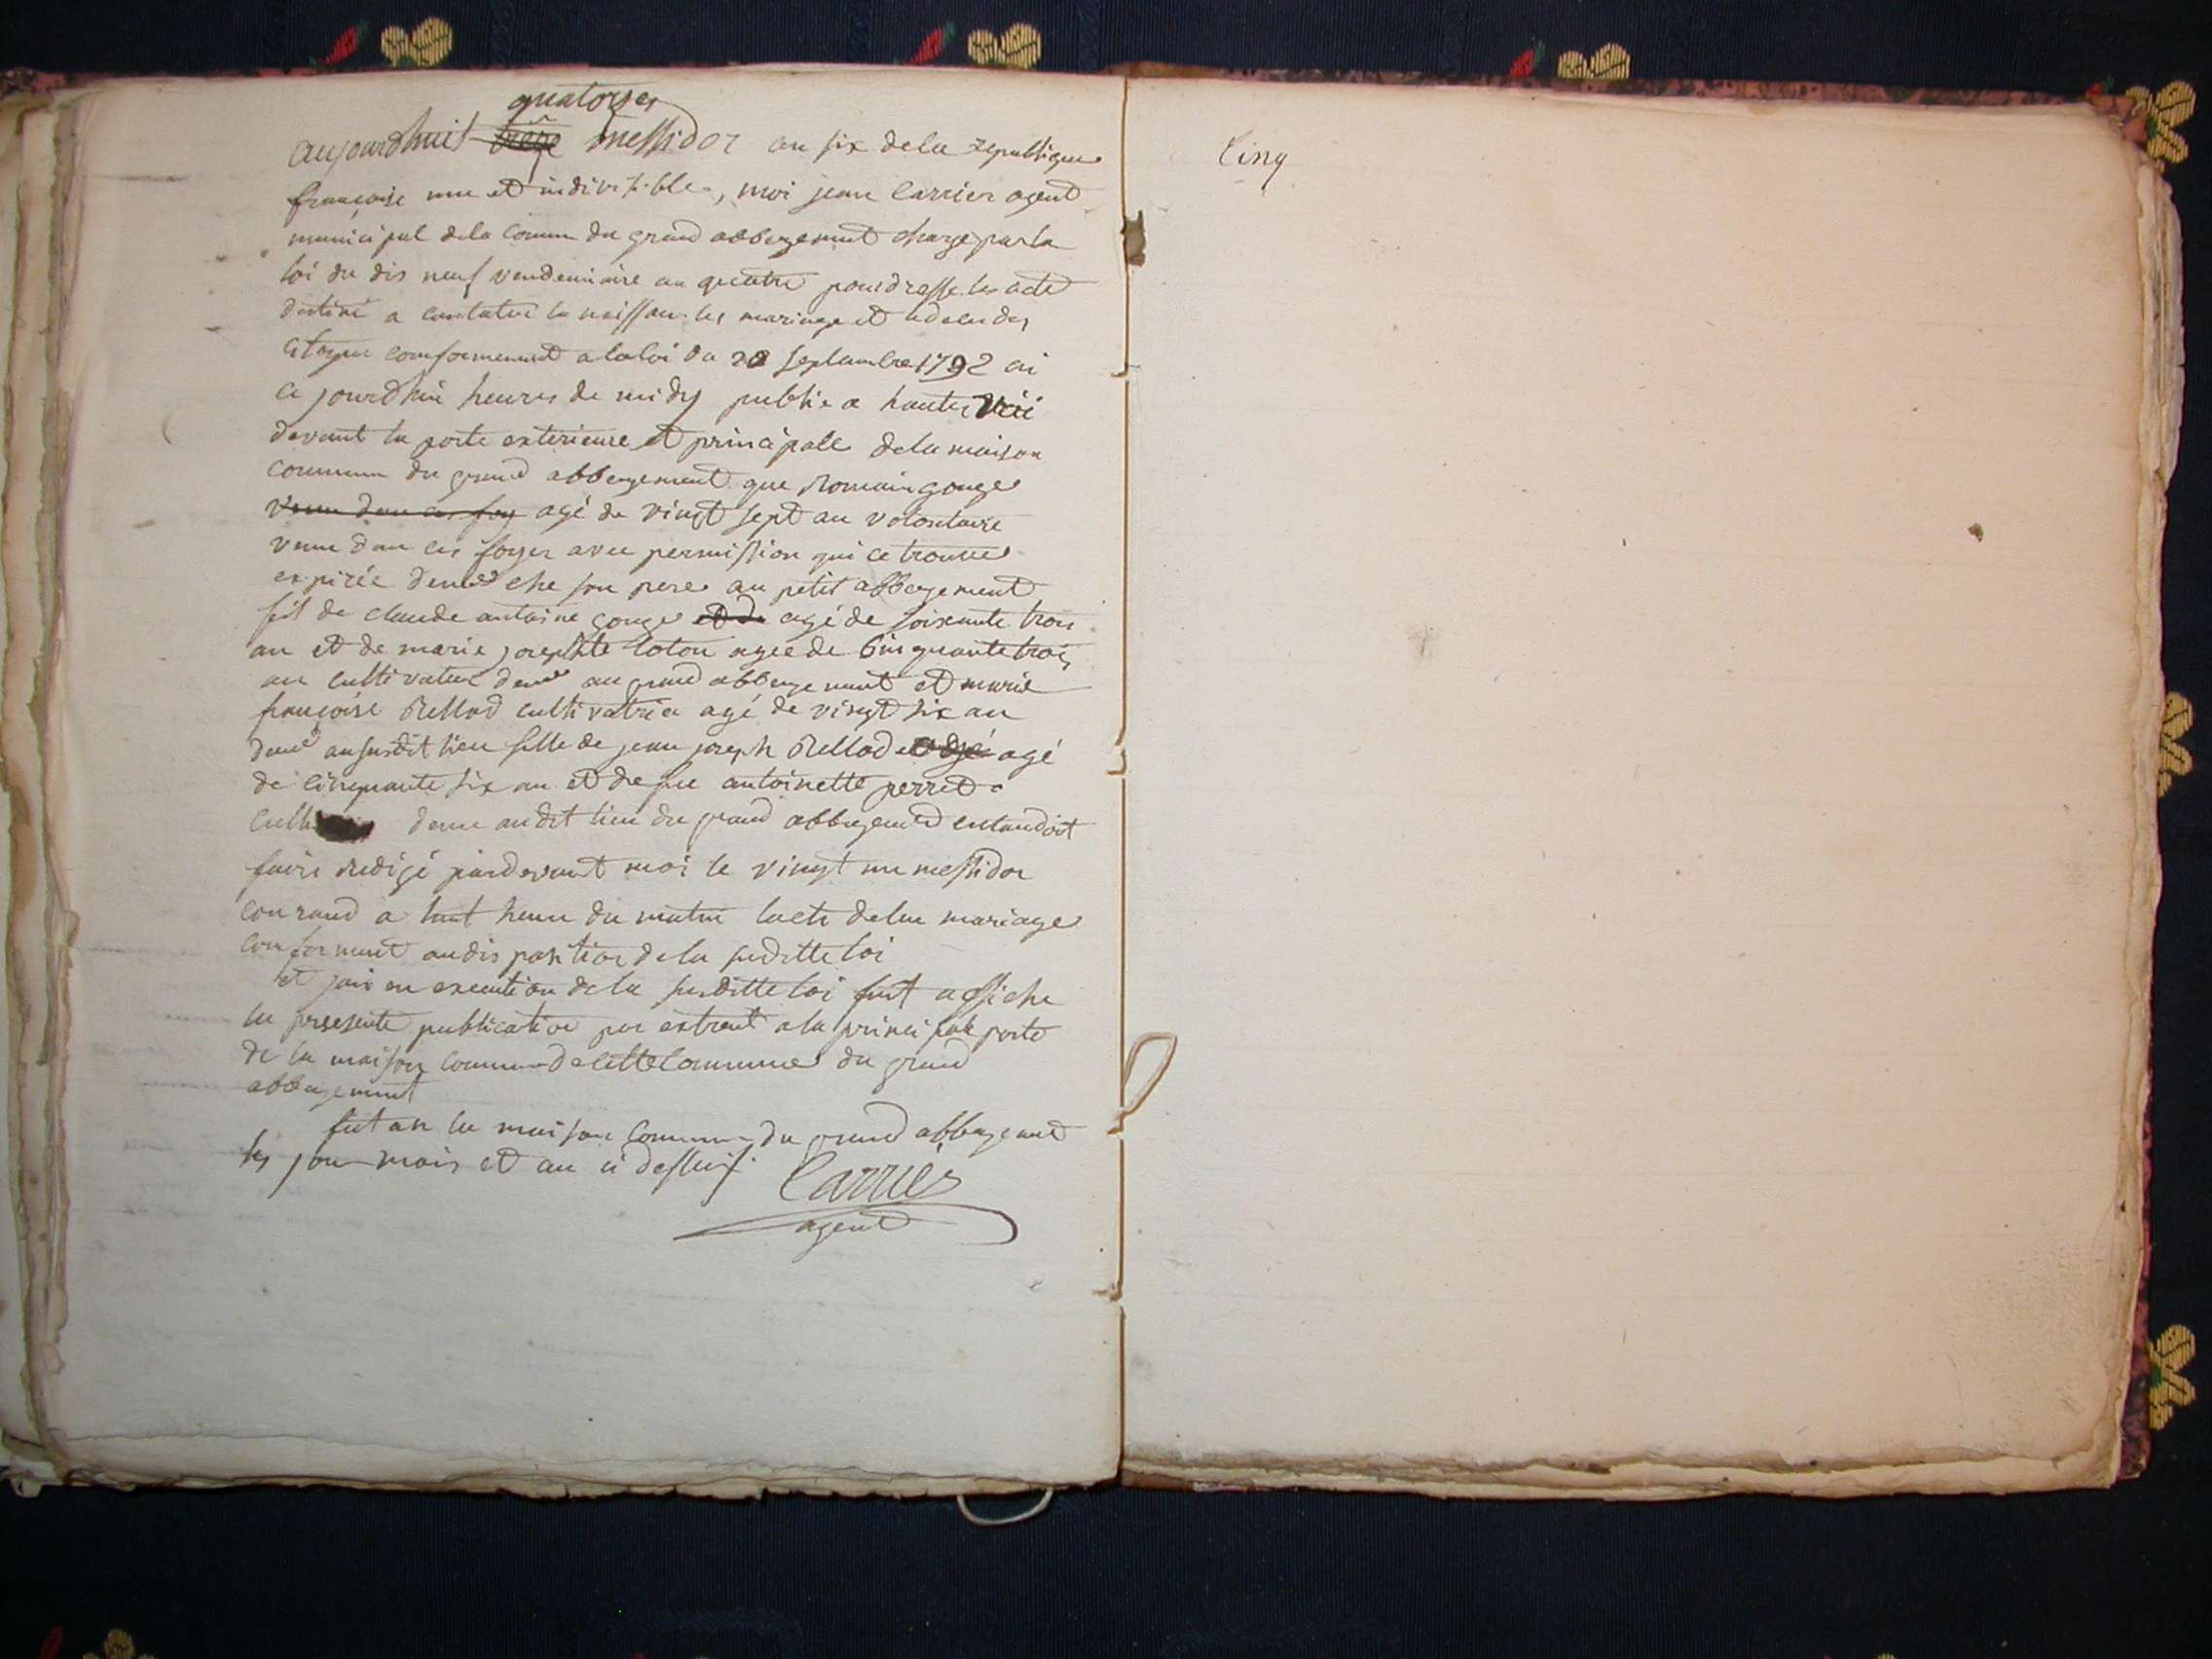 quatorze
aujourdhuit treze messidor an six dela republique
françoise une et indivisible, moi jean Carrier agent
municipal dela Comun du grand abbergement charge par la
loi du dis neuf vendemiaire an quatre pour drasse les acte
destiné a constater la naissan les mariage et
Citoyen conformement a la loi du 20 septembre 1792 ai
ce jourdhui heures de midy publie a hautes voii
devant la porte exterieure et principale dela maison
commun du grand abbergement que Romain gouge
venu dan ces foy agé de vingt sept an volontaire
venu dan ces foyer avec permission qui ce trouve
expirée deme che son pere au petit abbergement
fil de claude antoine gouge et de agé de soixante trois
an et de marie josephte Coton agee de Cinquante trois
an cultivateur deme au grand abbergement et marie
françoise Rellod cultivatrice agé de vingt six an
deme au susdit lieu fille de jean joseph Rellod agé
de Cinquante six an et de feu antoinette perret
Culti deme au dit lieu du grand abbergement entandoit
faire redigé pardevant moi le vingt un messidor
courand a huit heure du matin lacte de leu mariage
conforment au dis position de la suditte loi
et jais en execution de la susditte loi fait affiche
la presente publication par extrait a la principale porte
de la maison commun de cette Commune du grand
abbergement
fait an la maison Commun du grand abbergement
les jour mois et an ci dessus.
Carrier
agent
Cinq